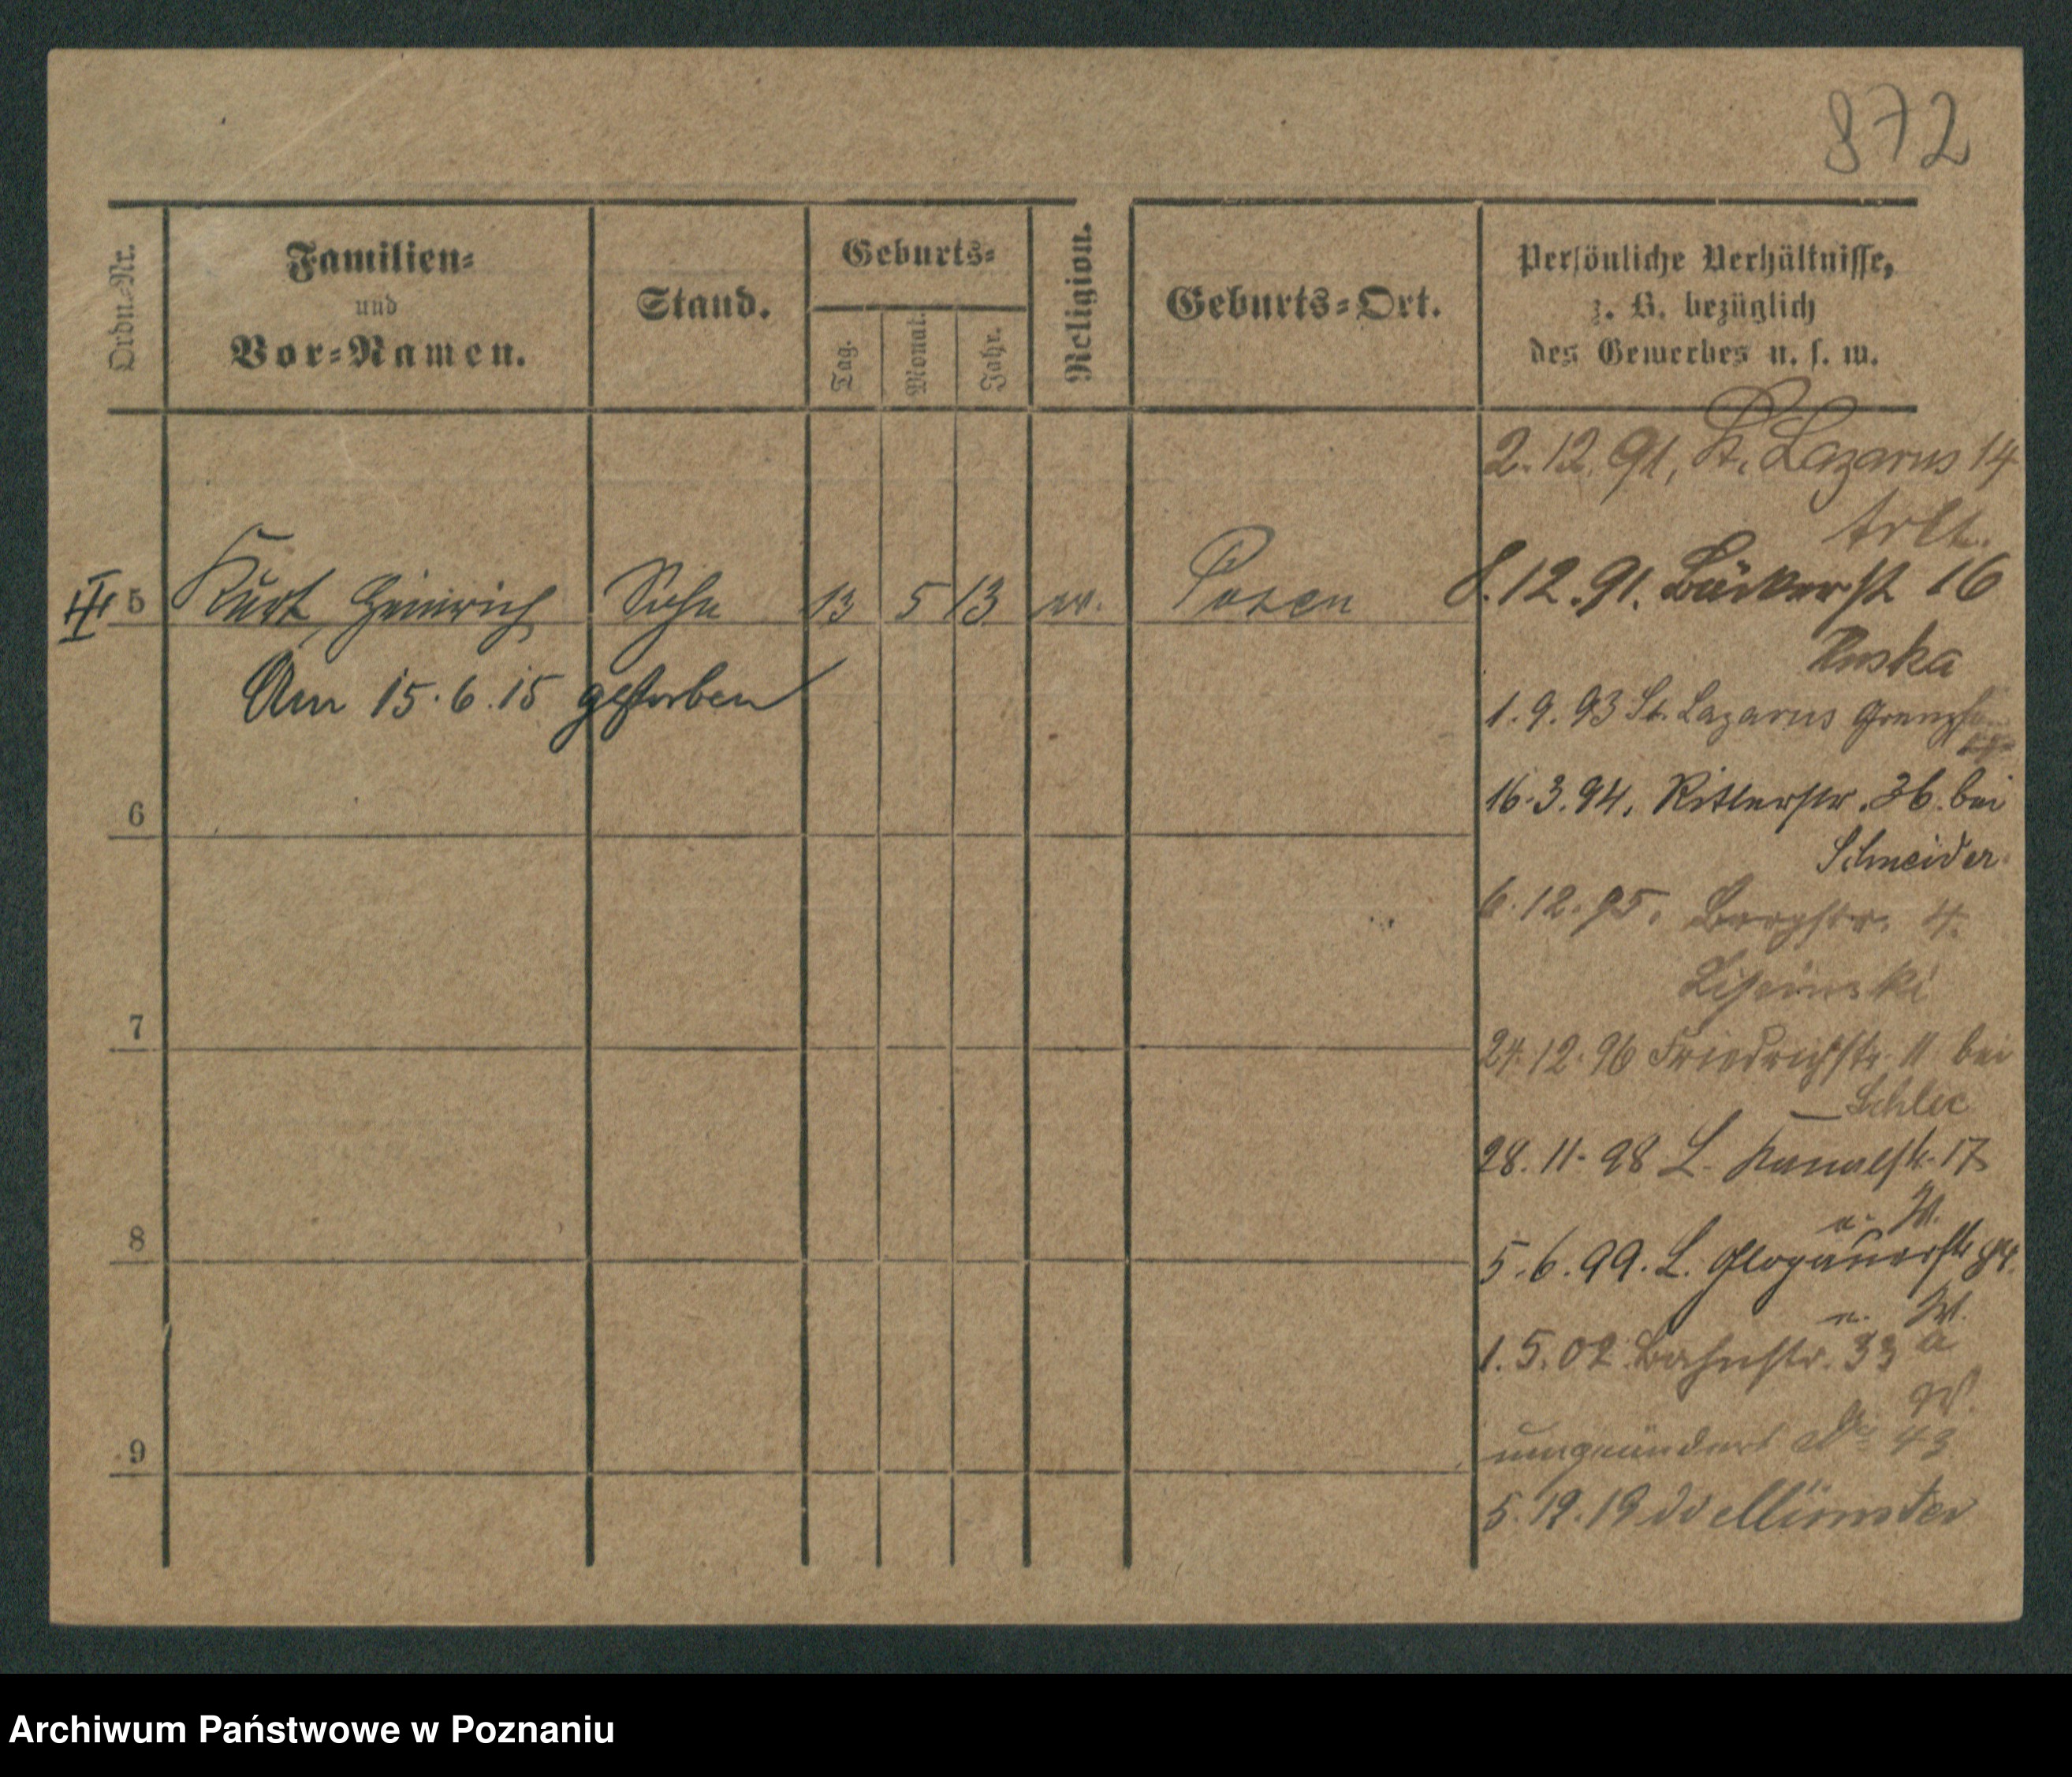 872
Ordn.-Nr.
Familien-
und
Vor-Namen.
Stand.
Geburts-
Tag.
Monat.
Jahr.
Religion.
Geburts-Ort.
Persönliche Verhältnisse,
z. B. bezüglich
des Gewerbes u. s. w.
2.12.91, St. Lazarus 14
III 5 Kurt, Heinrich Sohn 13 5 13 ev. Posen
8.12.91. Bäckerst 16
Am 15.6.15 gestorben
1.9.93 St. Lazarus
6
16.3.94. Ritterstr. 36. bei
Schneider
6.12.95. Bergstr. 4.
7
24.12.96 Friedrichstr. 11 bei
28.11.98 L. Kanalstr. 17
8
5.6.99. L. Glogauerstr
n. W.
1.5.02 Bahnstr. 33 a
W.
9
umgeändert No 43
5.12.19 Münster
Archiwum Państwowe w Poznaniu